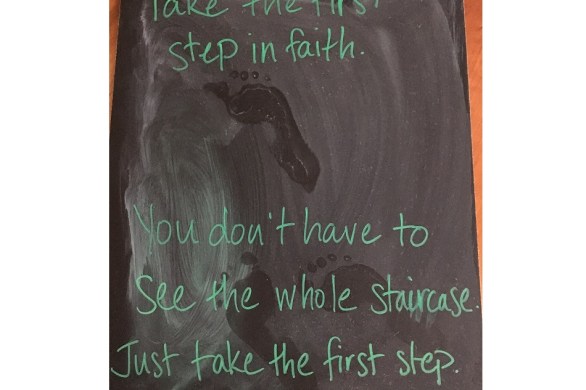 Take the first
step in faith.
You don't have to
See the whole staircase.
Just take the first step.